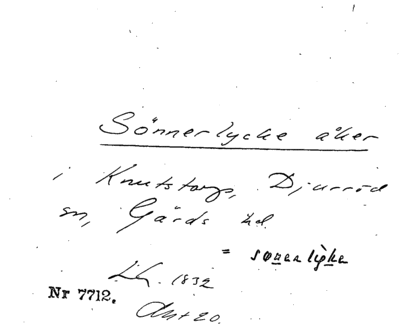 Sönnerlycke åker
i Knutstorp, Djurröd
sn, Gärds hd.
= sønerlyke
LH. 1832
Nr 7712.
Akt 20.